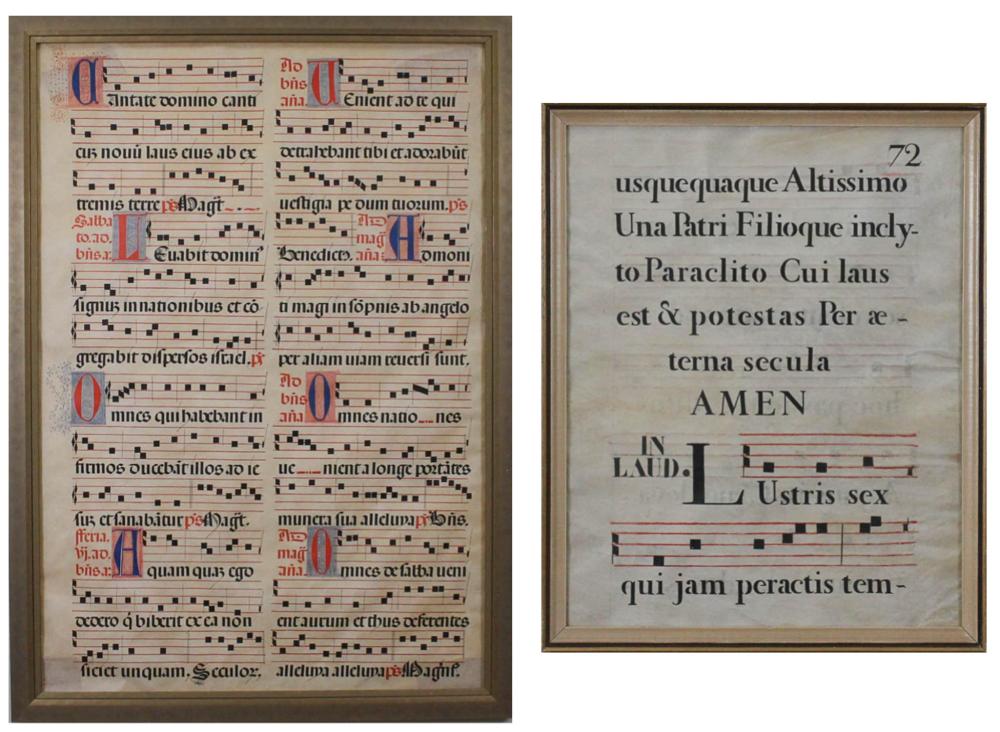 Cantate domino canti
cuz nouū laus eius ab ex
tremis terre ps Magt̄
Sabba
to. ad.
bn̄s a.
Leuabit domin9
signuz in nationibus et cō
gregabit dispersos israel. ps
Omnes qui habebant in
firmos ducebāt illos ad ie
suz et sanabātur ps Magt̄.
fferia.
vj. ad.
bn̄s a.
Aquam quaz ego
dedero q̄ biberit ex ea non
siciet unquam. Seculor.
Ad
bn̄s
ana.
Uenient ad te qui
detrahebant tibi et adorabūt
uestigia pedum tuorum. ps
Benedictꝰ.
Ad
maḡ
ana
Admoni
ti magi in sōpnis ab angelo
per aliam uiam reuersi sunt.
Ad
bn̄s
ana
Omnes natio nes
ue nient a longe portātes
munera sua alleluya ps Bn̄s.
Ad
maḡ
ana.
Omnes de salba ueni
ent aurum et thus deferentes
alleluya alleluya ps Magn̄f.
72
usquequaque Altissimo
Una Patri Filioque incly-
to Paraclito Cui laus
est & potestas Per æ-
terna secula
AMEN
IN
LAUD.
LUstris sex
qui jam peractis tem-